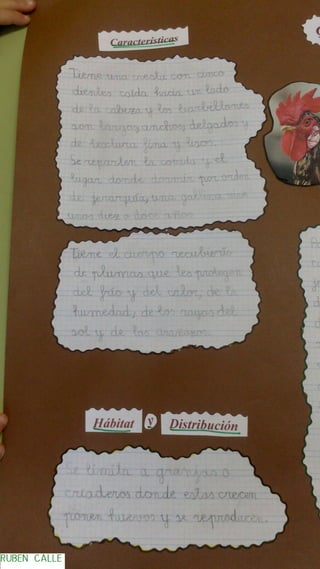 Características
Tiene una cresta con cinco
dientes caída hacia un lado
de la cabeza y los barbillones
son largos, anchos, delgados y
de textura fina y lisos.
Se reparten la comida y el
lugar donde dormir por orden
de jerarquía, una gallina vive
unos diez o doce años
Tiene el cuerpo recubierto
de plumas que les protegen
del frío y del calor, de la
humedad, de los rayos del
sol y de los arañazos.
Hábitat y Distribución
Se limita a granjas o
criaderos donde estas crecen
ponen huevos y se reproducen.
RUBEN CALLE